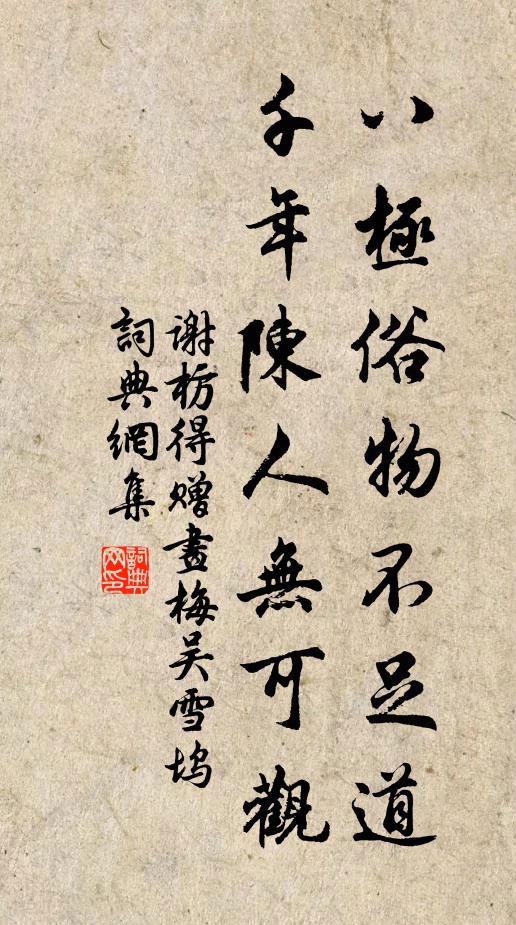 八極俗物不足道
千年陳人無可觀
谢枋得赠畫梅吴雪坞
詞典網集
詞典網印